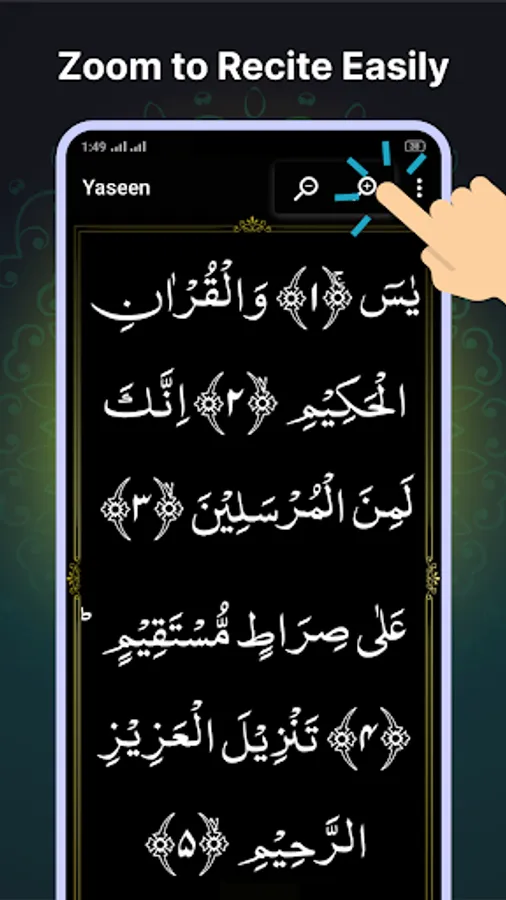 Zoom to Recite Easily
1:49
Yaseen
یٰسٓ ﴿۱﴾ۚ وَالْقُرْاٰنِ
الْحَكِیْمِ ﴿۲﴾ۙ اِنَّكَ
لَمِنَ الْمُرْسَلِیْنَ ﴿۳﴾ۙ
عَلٰى صِرَاطٍ مُّسْتَقِیْمٍ ؕ
﴿۴﴾ تَنْزِیْلَ الْعَزِیْزِ
الرَّحِیْمِ ﴿۵﴾ۙ